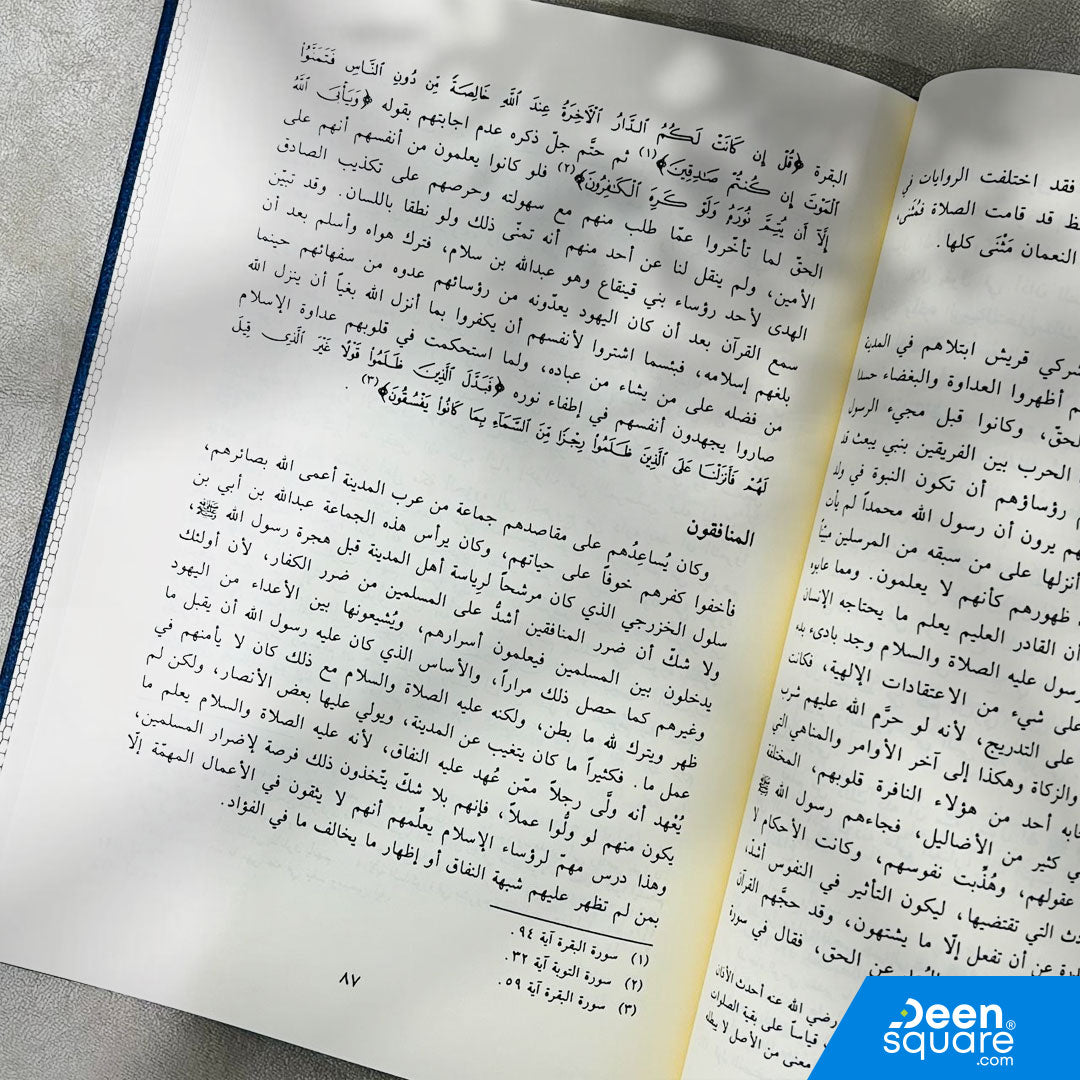 فقد اختلفت الروايات في
قد قامت الصلاة فمُثنى،
النعمان مَثْنَى كلها.
شركي قريش ابتلاهم في المدينة
أظهروا العداوة والبغضاء حسداً
الحقّ، وكانوا قبل مجيء الرسول
الحرب بين الفريقين بنبي يبعث قد
رؤساؤهم أن تكون النبوة في ولد
يرون أن رسول الله محمداً لم يأت
أنزلها على من سبقه من المرسلين مبيّناً
ظهورهم كأنهم لا يعلمون. ومما عابوه
أن القادر العليم يعلم ما يحتاجه الإنسان
رسول عليه الصلاة والسلام وجد بادىء بدء
على شيء من الاعتقادات الإلهية، فكانت
على التدريج، لأنه لو حرَّم الله عليهم شرب
والزكاة وهكذا إلى آخر الأوامر والمناهي التي
أحد من هؤلاء النافرة قلوبهم، المختلفة
في كثير من الأضاليل، فجاءهم رسول الله ﷺ
عقولهم، وهُذِّبت نفوسهم، وكانت الأحكام لا
التي تقتضيها، ليكون التأثير في النفوس أشدّ،
عن أن تفعل إلّا ما يشتهون، وقد حجَّهم القرآن
عن الحق، فقال في سورة
رضي الله عنه أحدث الأذان
قياساً على بقية الصلوات
معنى من الأصل لا يبطله
البقرة ﴿قُلْ إِن كَانَتْ لَكُمُ ٱلدَّارُ ٱلْآخِرَةُ عِندَ ٱللَّهِ خَالِصَةً مِّن دُونِ ٱلنَّاسِ فَتَمَنَّوُا۟
ٱلْمَوْتَ إِن كُنتُمْ صَـٰدِقِينَ﴾(١) ثم حتَّم جلّ ذكره عدم اجابتهم بقوله ﴿وَيَأْبَى ٱللَّهُ
إِلَّآ أَن يُتِمَّ نُورَهُ وَلَوْ كَرِهَ ٱلْكَـٰفِرُونَ﴾(٢) فلو كانوا يعلمون من أنفسهم أنهم على
الحقّ لما تأخّروا عمّا طلب منهم مع سهولته وحرصهم على تكذيب الصادق
الأمين، ولم ينقل لنا عن أحد منهم أنه تمنّى ذلك ولو نطقا باللسان. وقد تبيّن
الهدى لأحد رؤساء بني قينقاع وهو عبدالله بن سلام، فترك هواه وأسلم بعد أن
سمع القرآن بعد أن كان اليهود يعدّونه من رؤسائهم عدوه من سفهائهم حينما
بلغهم إسلامه، فبئسما اشتروا لأنفسهم أن يكفروا بما أنزل الله بغياً أن ينزل الله
من فضله على من يشاء من عباده، ولما استحكمت في قلوبهم عداوة الإسلام
صاروا يجهدون أنفسهم في إطفاء نوره ﴿فَبَدَّلَ ٱلَّذِينَ ظَلَمُوا۟ قَوْلًا غَيْرَ ٱلَّذِى قِيلَ
لَهُمْ فَأَنزَلْنَا عَلَى ٱلَّذِينَ ظَلَمُوا۟ رِجْزًا مِّنَ ٱلسَّمَآءِ بِمَا كَانُوا۟ يَفْسُقُونَ﴾(٣) .
المنافقون
وكان يُساعِدُهم على مقاصدهم جماعة من عرب المدينة أعمى الله بصائرهم،
فأخفوا كفرهم خوفاً على حياتهم، وكان يرأس هذه الجماعة عبدالله بن أبي بن
سلول الخزرجي الذي كان مرشحاً لرياسة أهل المدينة قبل هجرة رسول الله ﷺ،
ولا شكّ أن ضرر المنافقين أشدُّ على المسلمين من ضرر الكفار، لأن أولئك
يدخلون بين المسلمين فيعلمون أسرارهم، ويُشيعونها بين الأعداء من اليهود
وغيرهم كما حصل ذلك مراراً، والأساس الذي كان عليه رسول الله أن يقبل ما
ظهر ويترك لله ما بطن، ولكنه عليه الصلاة والسلام مع ذلك كان لا يأمنهم في
عمل ما. فكثيراً ما كان يتغيب عن المدينة، ويولي عليها بعض الأنصار، ولكن لم
يُعْهد أنه ولَّى رجلاً ممّن عُهد عليه النفاق، لأنه عليه الصلاة والسلام يعلم ما
يكون منهم لو ولُّوا عملاً، فإنهم بلا شكّ يتّخذون ذلك فرصة لإضرار المسلمين،
وهذا درس مهمّ لرؤساء الإسلام يعلّمهم أنهم لا يثقون في الأعمال المهمّة إلّا
بمن لم تظهر عليهم شبهة النفاق أو إظهار ما يخالف ما في الفؤاد.
(١) سورة البقرة آية ٩٤.
(٢) سورة التوبة آية ٣٢.
(٣) سورة البقرة آية ٥٩.
٨٧
Deen
square®
.com